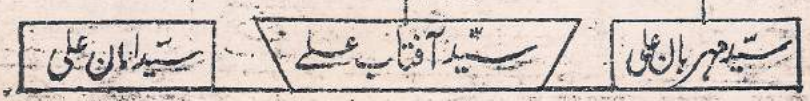 سیّد مہربان علی
سیّد آفتاب علی
سیّد امان علی